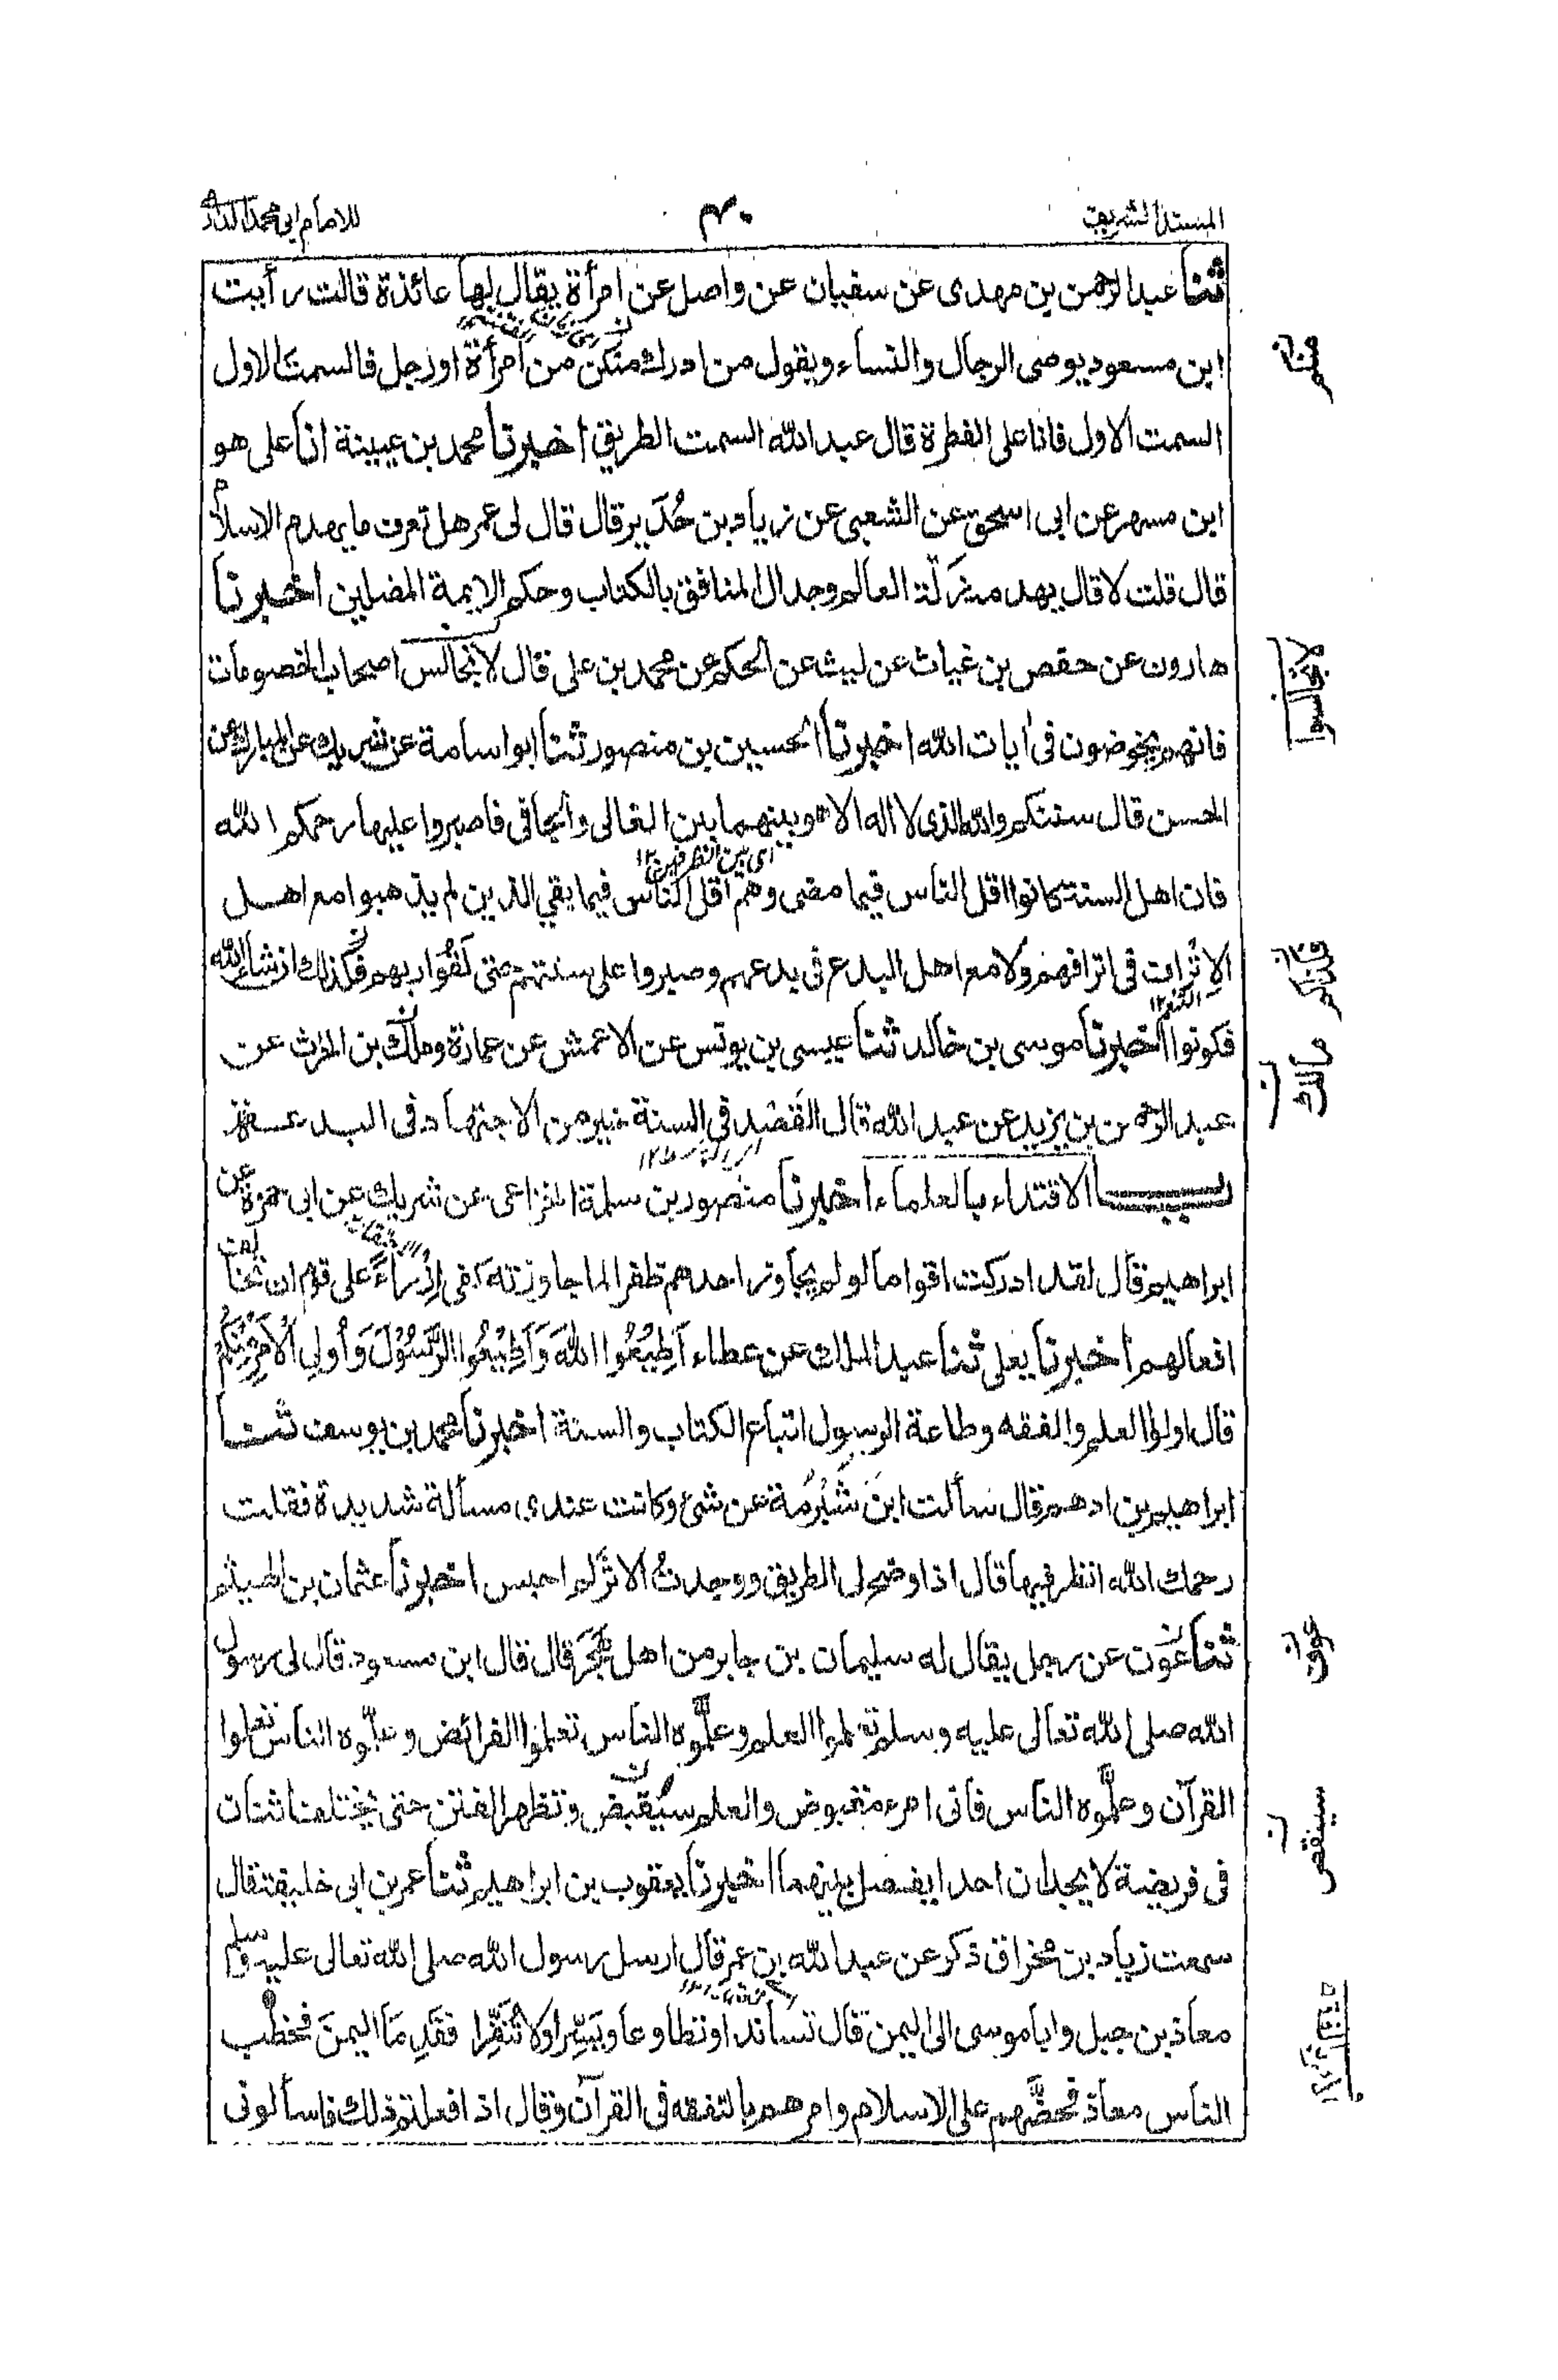 المسند الشريف
٤٠
للامام ابي محمد الدارمي
ثنا عبد الرحمن بن مهدى عن سفيان عن واصل عن امرأة يقال لها عائذة قالت رأيت
ابن مسعود يوصى الرجال والنساء ويقول من ادرك منكن من امرأة او رجل فالسمت الاول
السمت الاول فانا على الفطرة قال عبد الله السمت الطريق اخبرنا محمد بن عيينة انا على هو
ابن مسهر عن ابى اسحق عن الشعبى عن زياد بن حُدَير قال قال لى عمر هل تعرف ما يهدم الاسلام
قال قلت لا قال يهدمه زَلّة العالم وجدال المنافق بالكتاب وحكم الايمة المضلين اخبرنا
هارون عن حفص بن غياث عن ليث عن الحكم عن محمد بن على قال لا تجالس اصحاب الخصومات
فانهم يخوضون فى آيات الله اخبرنا الحسين بن منصور ثنا ابو اسامة عن شريك عن المبارك عن
الحسن قال سنتكم والله الذى لا اله الا هو بينهما بين الغالى والجافى فاصبروا عليها رحمكم الله
اى بين الطرفين ١٢
فان اهل السنة كانوا اقل الناس فيما مضى وهم اقل الناس فيما بقي الذين لم يذهبوا مع اهل
الاِتْراف فى اترافهم ولا مع اهل البدع فى بدعهم وصبروا على سنتهم حتى لَقُوا ربهم فكذلك ان شاء الله
التنعم ١٢
فكونوا اخبرنا موسى بن خالد ثنا عيسى بن يونس عن الاعمش عن عمارة ومالك بن الحرث عن
عبد الرحمن بن يزيد عن عبد الله قال القَصْد فى السنة خير من الاجتهاد فى البدعة
باب الاقتداء بالعلماء اخبرنا منصور بن سلمة الخزاعى عن شريك عن ابى حمزة عن
ابراهيم قال لقد ادركت اقواما لو لم يجاوز احدهم ظفرا لما جاوزته كفى اِزْراءً على قوم ان تخالف
افعالهم اخبرنا يعلى ثنا عبد الملك عن عطاء اَطِيْعُوا اللهَ وَاَطِيْعُوا الرَّسُوْلَ وَاُولِى الْاَمْرِ مِنْكُمْ
قال اولوا العلم والفقه وطاعة الرسول اتباع الكتاب والسنة اخبرنا محمد بن يوسف ثنا
ابراهيم بن ادهم قال سألت ابنَ شُبْرُمة عن شئ وكانت عندى مسألة شديدة فقلت
رحمك الله انظر فيها قال اذا وضح لى الطريق ووجدتُ الاثَر لم احبس اخبرنا عثمان بن الهيثم
ثنا عَوْن عن رجل يقال له سليمان بن جابر من اهل هَجَر قال قال ابن مسعود قال لى رسول
الله صلى الله تعالى عليه وسلم تعلموا العلم وعلّموه الناس تعلموا الفرائض وعلّموه الناس تعلموا
القرآن وعلّموه الناس فانى امرء مقبوض والعلم سيُقبَض وتظهر الفتن حتى يختلف اثنان
فى فريضة لا يجدان احدا يفصل بينهما اخبرنا يعقوب بن ابراهيم ثنا عمر بن ابى خليفة قال
سمعت زياد بن مخراق ذكر عن عبد الله بن عمر قال ارسل رسول الله صلى الله تعالى عليه وسلم
معاذ بن جبل وابا موسى الى اليمن قال تساندا وتطاوعا ويَسِّرا ولا تُنَفِّرا فقَدِمَا اليمنَ فخطب
الناس معاذ فحضَّهم على الاسلام وامرهم بالتفقه فى القرآن وقال اذا فعلتم ذلك فاسألونى
منكم
لا تجالسوا
مالك
عوف
سينقص